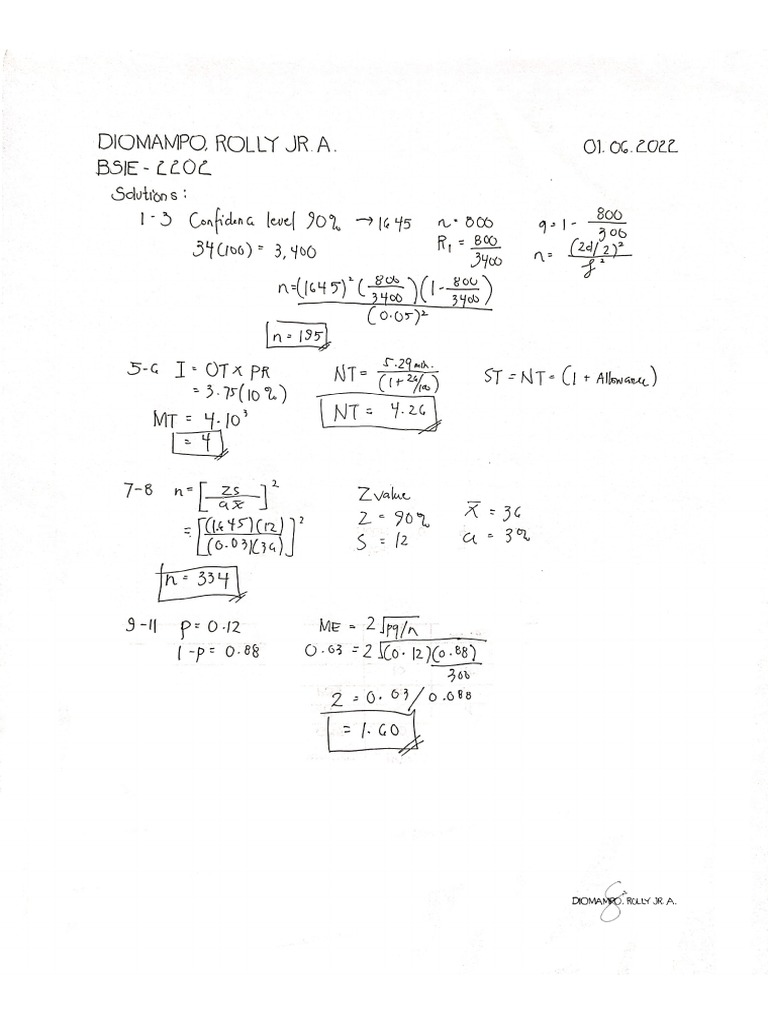 DIOMAMPO, ROLLY JR. A. 01.06.2022
BSIE - 2202
Solutions:
1-3 Confidence level 90% → 1645 n = 800 q = 1 - 800/300
34(100) = 3,400 R₁ = 800/3400 n = (2d/2)²/f²
n = (1645)² (800/3400)(1 - 800/3400) / (0.05)²
n = 195
5-6 I = OT x PR NT = 5.29 min. / (1 + 24/100) ST = NT = (1 + Allowance)
= 3.75(10%)
MT = 4.10³ NT = 4.26
= 4
7-8 n = [ZS / ax̄]² Z value
Z = 90% x̄ = 36
= [(1.645)(12) / (0.03)(36)]² S = 12 a = 3%
n = 334
9-11 p = 0.12 ME = 2 √pq/n
1-p = 0.88 0.03 = 2 √(0.12)(0.88)/300
2 = 0.03 / 0.088
= 1.60
DIOMAMPO, ROLLY JR. A.